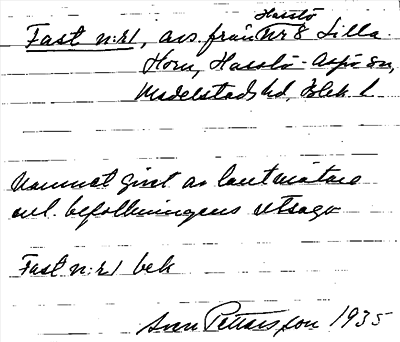 Hasslö
Fast n:r1, avs. från nr 8 Lilla
Horn, Hasslö - Aspö sn,
Medelstads hd, Blek. l.
Namnet givet av lantmätare
enl. befolkningens utsago
Fast n:r1 bek
Sven Pettersson 1935